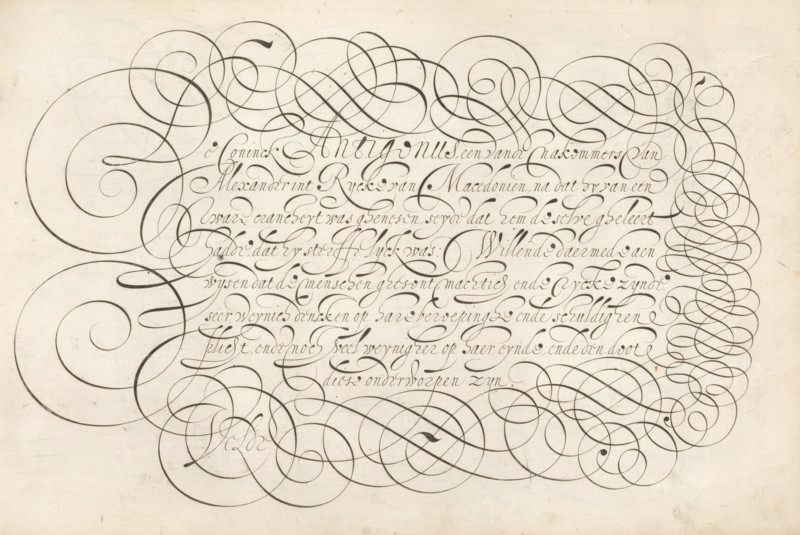 De Coninck Antigonus, een vande nakommers van
Alexander int Rycke van Macedonien, na dat hy van een
sware cranckheyt was ghenesen, seyde dat hem deselve gheleert
hadde, dat hy sterffelyck was: Willende daermede aen
wysen dat de menschen ghesont machtich ende rycke zynde
seer weynich dencken op hare beroepinghe ende schuldighen
plicht, ende noch veel weynigher op haer eynde, ende den doot
die se onderworpen zyn.
Velde